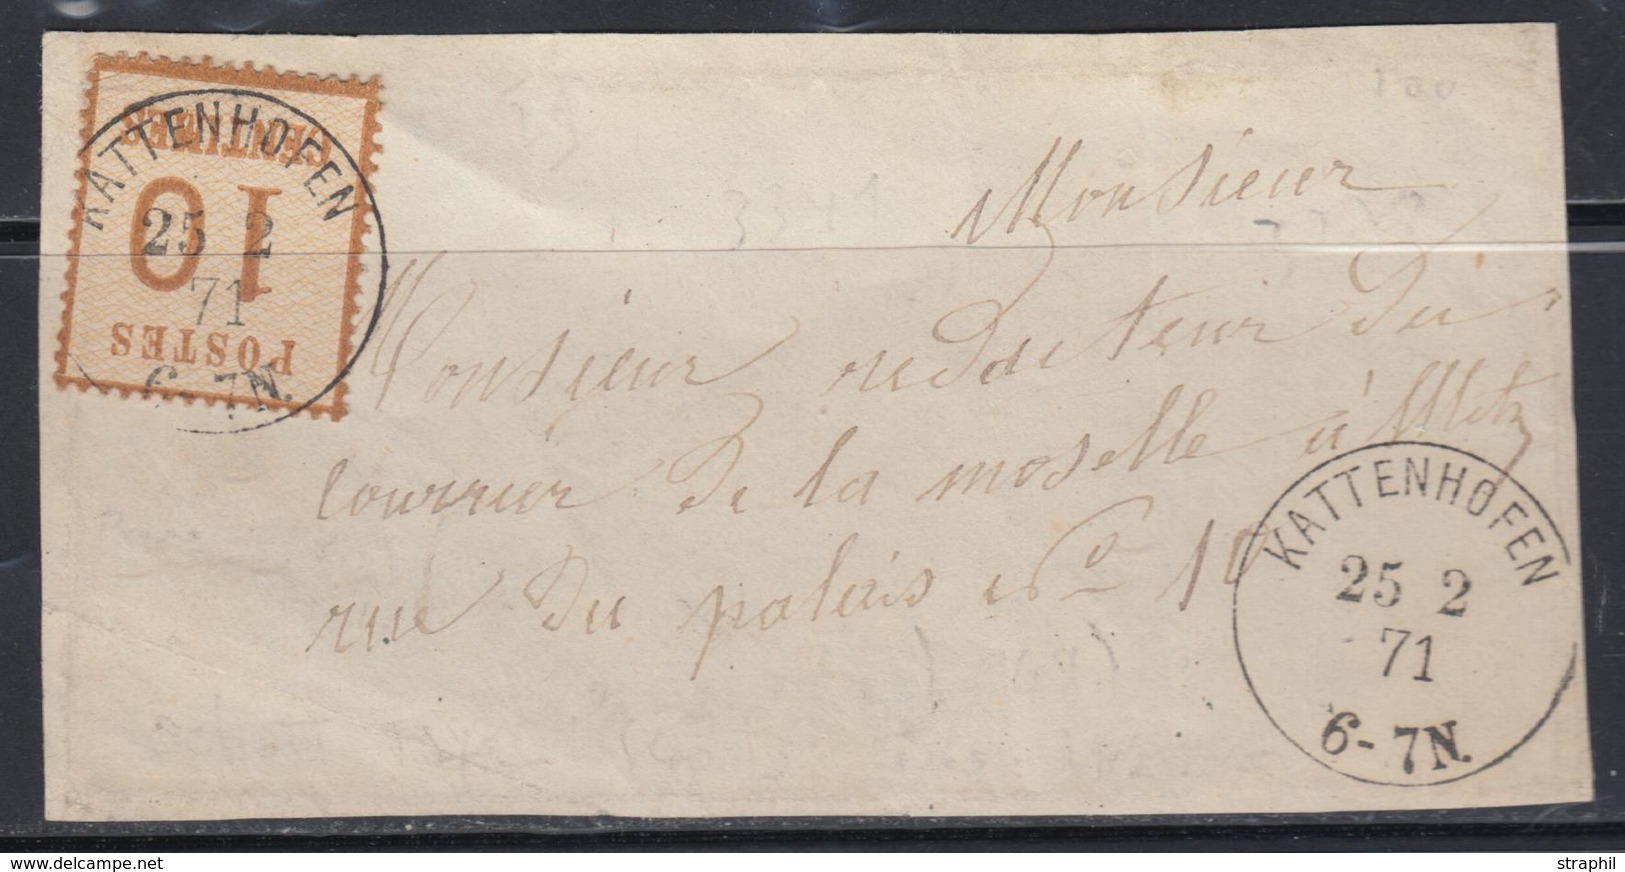 KATTENHOFEN
25 2
71
6-7N.
POSTES
10
CENTIMES
Monsieur
Monsieur redacteur du
courrier de la moselle à Metz
rue du palais No 10
KATTENHOFEN
25 2
71
6-7N.
www.delcampe.net
straphil